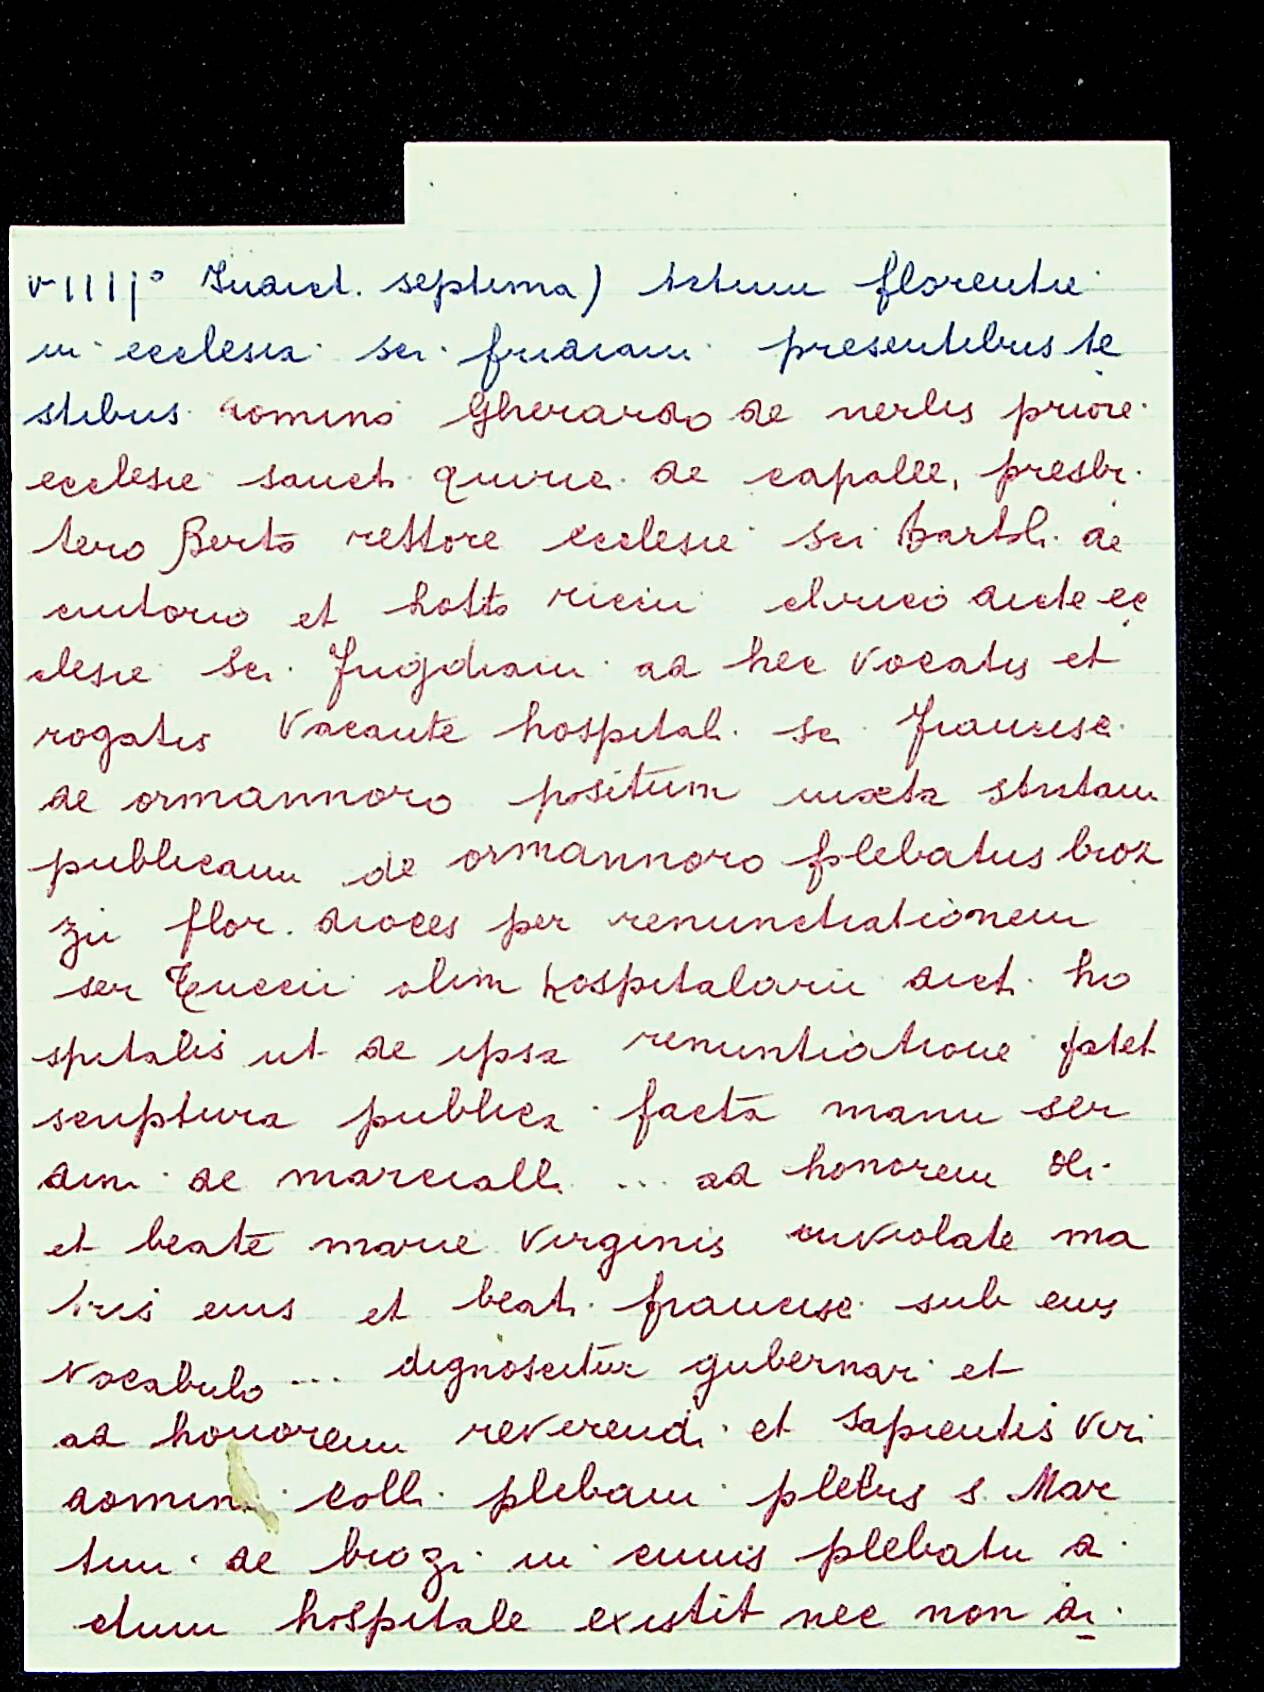 viiij° Indict. septima) Actum florentie
in ecclesia sci. fridiani presentibus te
stibus domino Gherardo de nerlis priore
ecclesie sancti quirici de capalle, presbi
tero Berto rettore ecclesie sci bartoli de
cintorio et hotto riccii clerico dicte ec
clesie sci. frigdiani ad hec vocatis et
rogatis Vacante hospitali sci francisci
de ormannoro positum iuxta stratam
publicam de ormannoro plebatus broz
zii flor. dioces per renunctiationem
ser Tuccii olim hospitalarii dicti ho
spitalis ut de ipsa renuntiatione patet
scriptura publica facta manu ser
dini de marcialli ... ad honorem dei
et beate marie virginis inviolate ma
tris eius et beati francisci sub eius
vocabulo ... dignoscitur gubernari et
ad honorem reverendi et sapientis viri
domini colli plebani plebis s. Mar
tini de brozi in cuius plebatu di
ctum hospitale existit nec non di